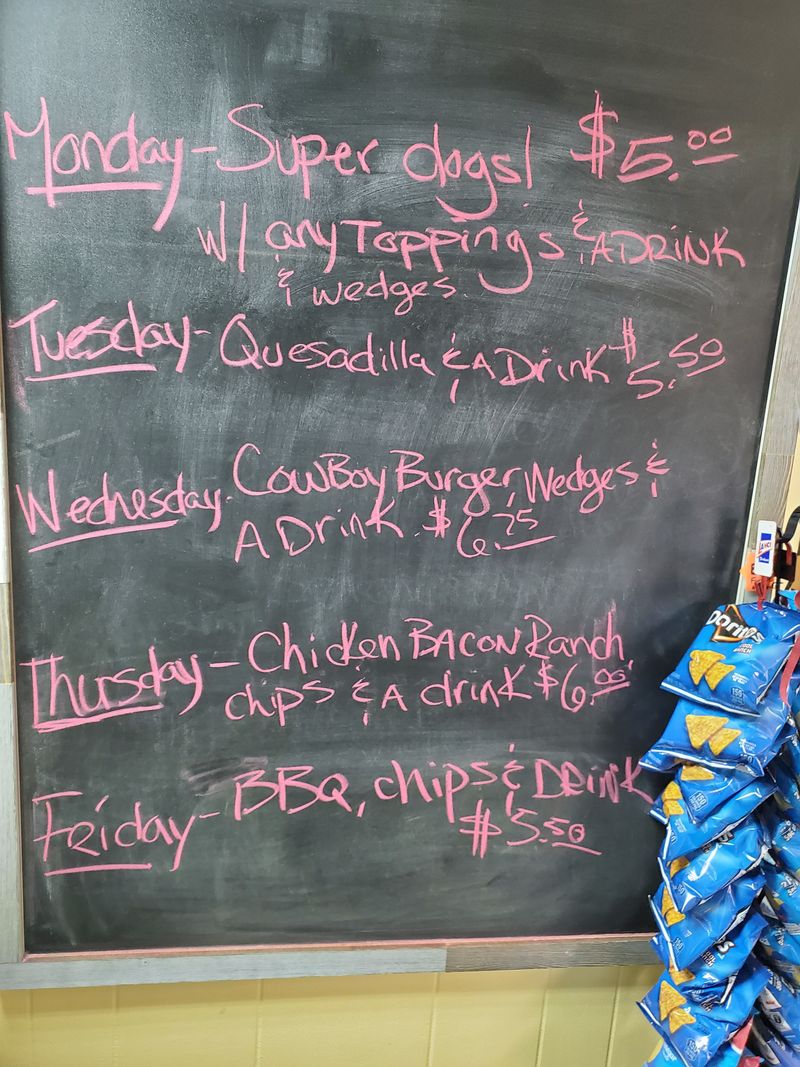 Monday - Super dogs! $5.00
w/ any Toppings & A DRINK
& wedges.
Tuesday - Quesadilla & A Drink $5.50
Wednesday - CowBoy Burger, Wedges &
A Drink. $6.75
Thursday - Chicken BACON Ranch
chips & A drink $6.00
Friday - BBQ, chips & DRINK
$5.50
LANCE
Doritos
COOL RANCH
150
150
150